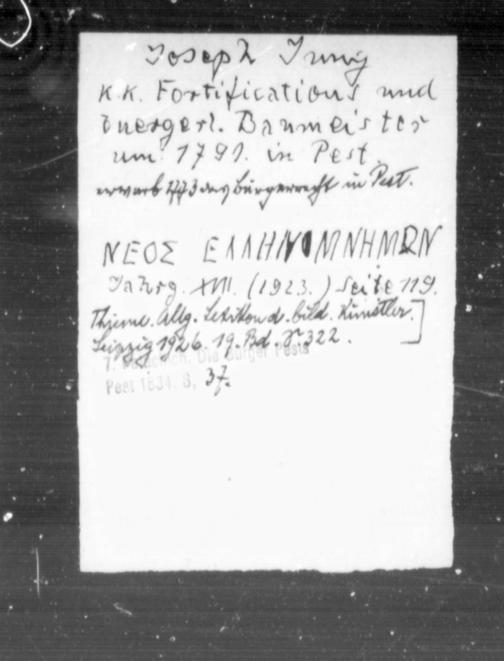 Joseph Jung
K.K. Fortifications und
buergerl. Baumeister
um 1791. in Pest.
erwarb 1773 das Bürgerrecht in Pest.
ΝΕΟΣ ΕΛΛΗΝΟΜΝΗΜΩΝ
Jahrg. XVII. (1923.) Seite 119.
Thieme. Allg. Lexikon d. bild. Künstler.]
Leipzig 1926. 19. Bd. S 322.
Die Bürger Pests
Pest 1834. S. 37.